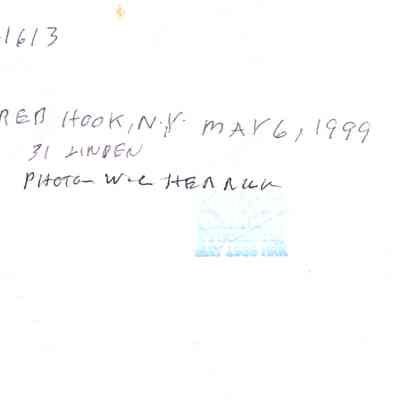 1613
RED HOOK, N.Y. MAY 6, 1999
31 LINDEN
PHOTO W.C HERRICK